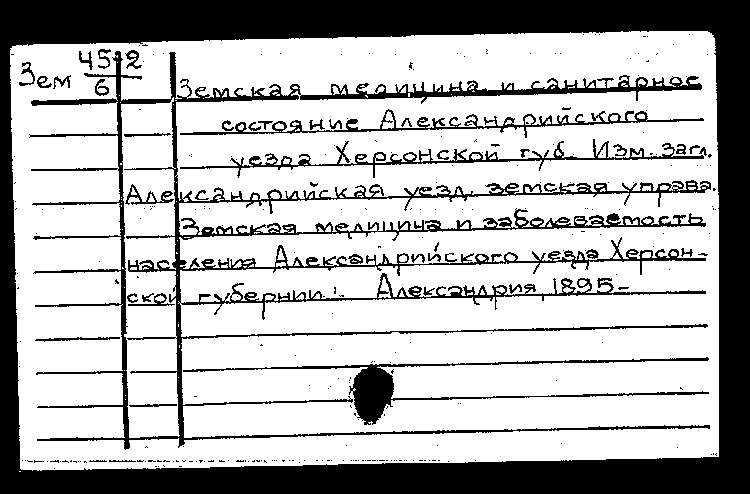 Зем 45-2
6
Земская медицина и санитарное
состояние Александрийского
уезда Херсонской губ. Изм. загл.
Александрийская уезд. земская управа.
Земская медицина и заболеваемость
населения Александрийского уезда Херсон-
ской губернии. Александрия, 1895-